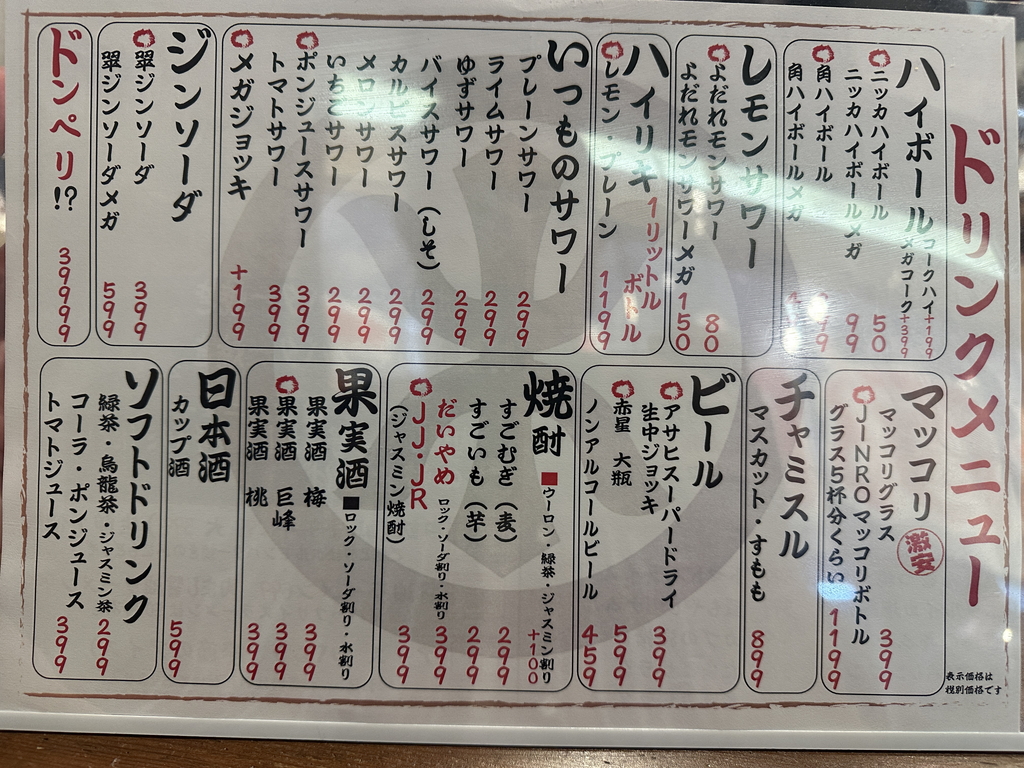 ドリンクメニュー
ハイボール
コークハイ+199
メガコーク+399
ニッカハイボール 50
ニッカハイボールメガ 99
角ハイボール
角ハイボールメガ
レモンサワー
よだれモンサワー 80
よだれモンサワーメガ 150
ハイリキ 1リットルボトル
レモン・プレーン 1199
いつものサワー
プレーンサワー 299
ライムサワー 299
ゆずサワー 299
バイスサワー(しそ) 299
カルピスサワー 299
メロンサワー 299
いちごサワー 299
ポンジュースサワー 399
トマトサワー 399
メガジョッキ +199
ジンソーダ
翠ジンソーダ 399
翠ジンソーダメガ 599
ドンペリ!? 39999
マッコリ 激安
マッコリグラス 399
JINROマッコリボトル
グラス5杯分くらい 1199
チャミスル
マスカット・すもも 899
ビール
アサヒスーパードライ
生中ジョッキ 399
赤星 大瓶 599
ノンアルコールビール 459
焼酎
■ウーロン・緑茶・ジャスミン割り +100
すごむぎ(麦) 299
すごいも(芋) 299
だいやめ ロック・ソーダ割り・水割り 399
JJ・JR
(ジャスミン焼酎) 399
果実酒 ■ロック・ソーダ割り・水割り
果実酒 梅 399
果実酒 巨峰 399
果実酒 桃 399
日本酒
カップ酒 599
ソフトドリンク
緑茶・烏龍茶・ジャスミン茶 299
コーラ・ポンジュース
トマトジュース 399
表示価格は
税別価格です